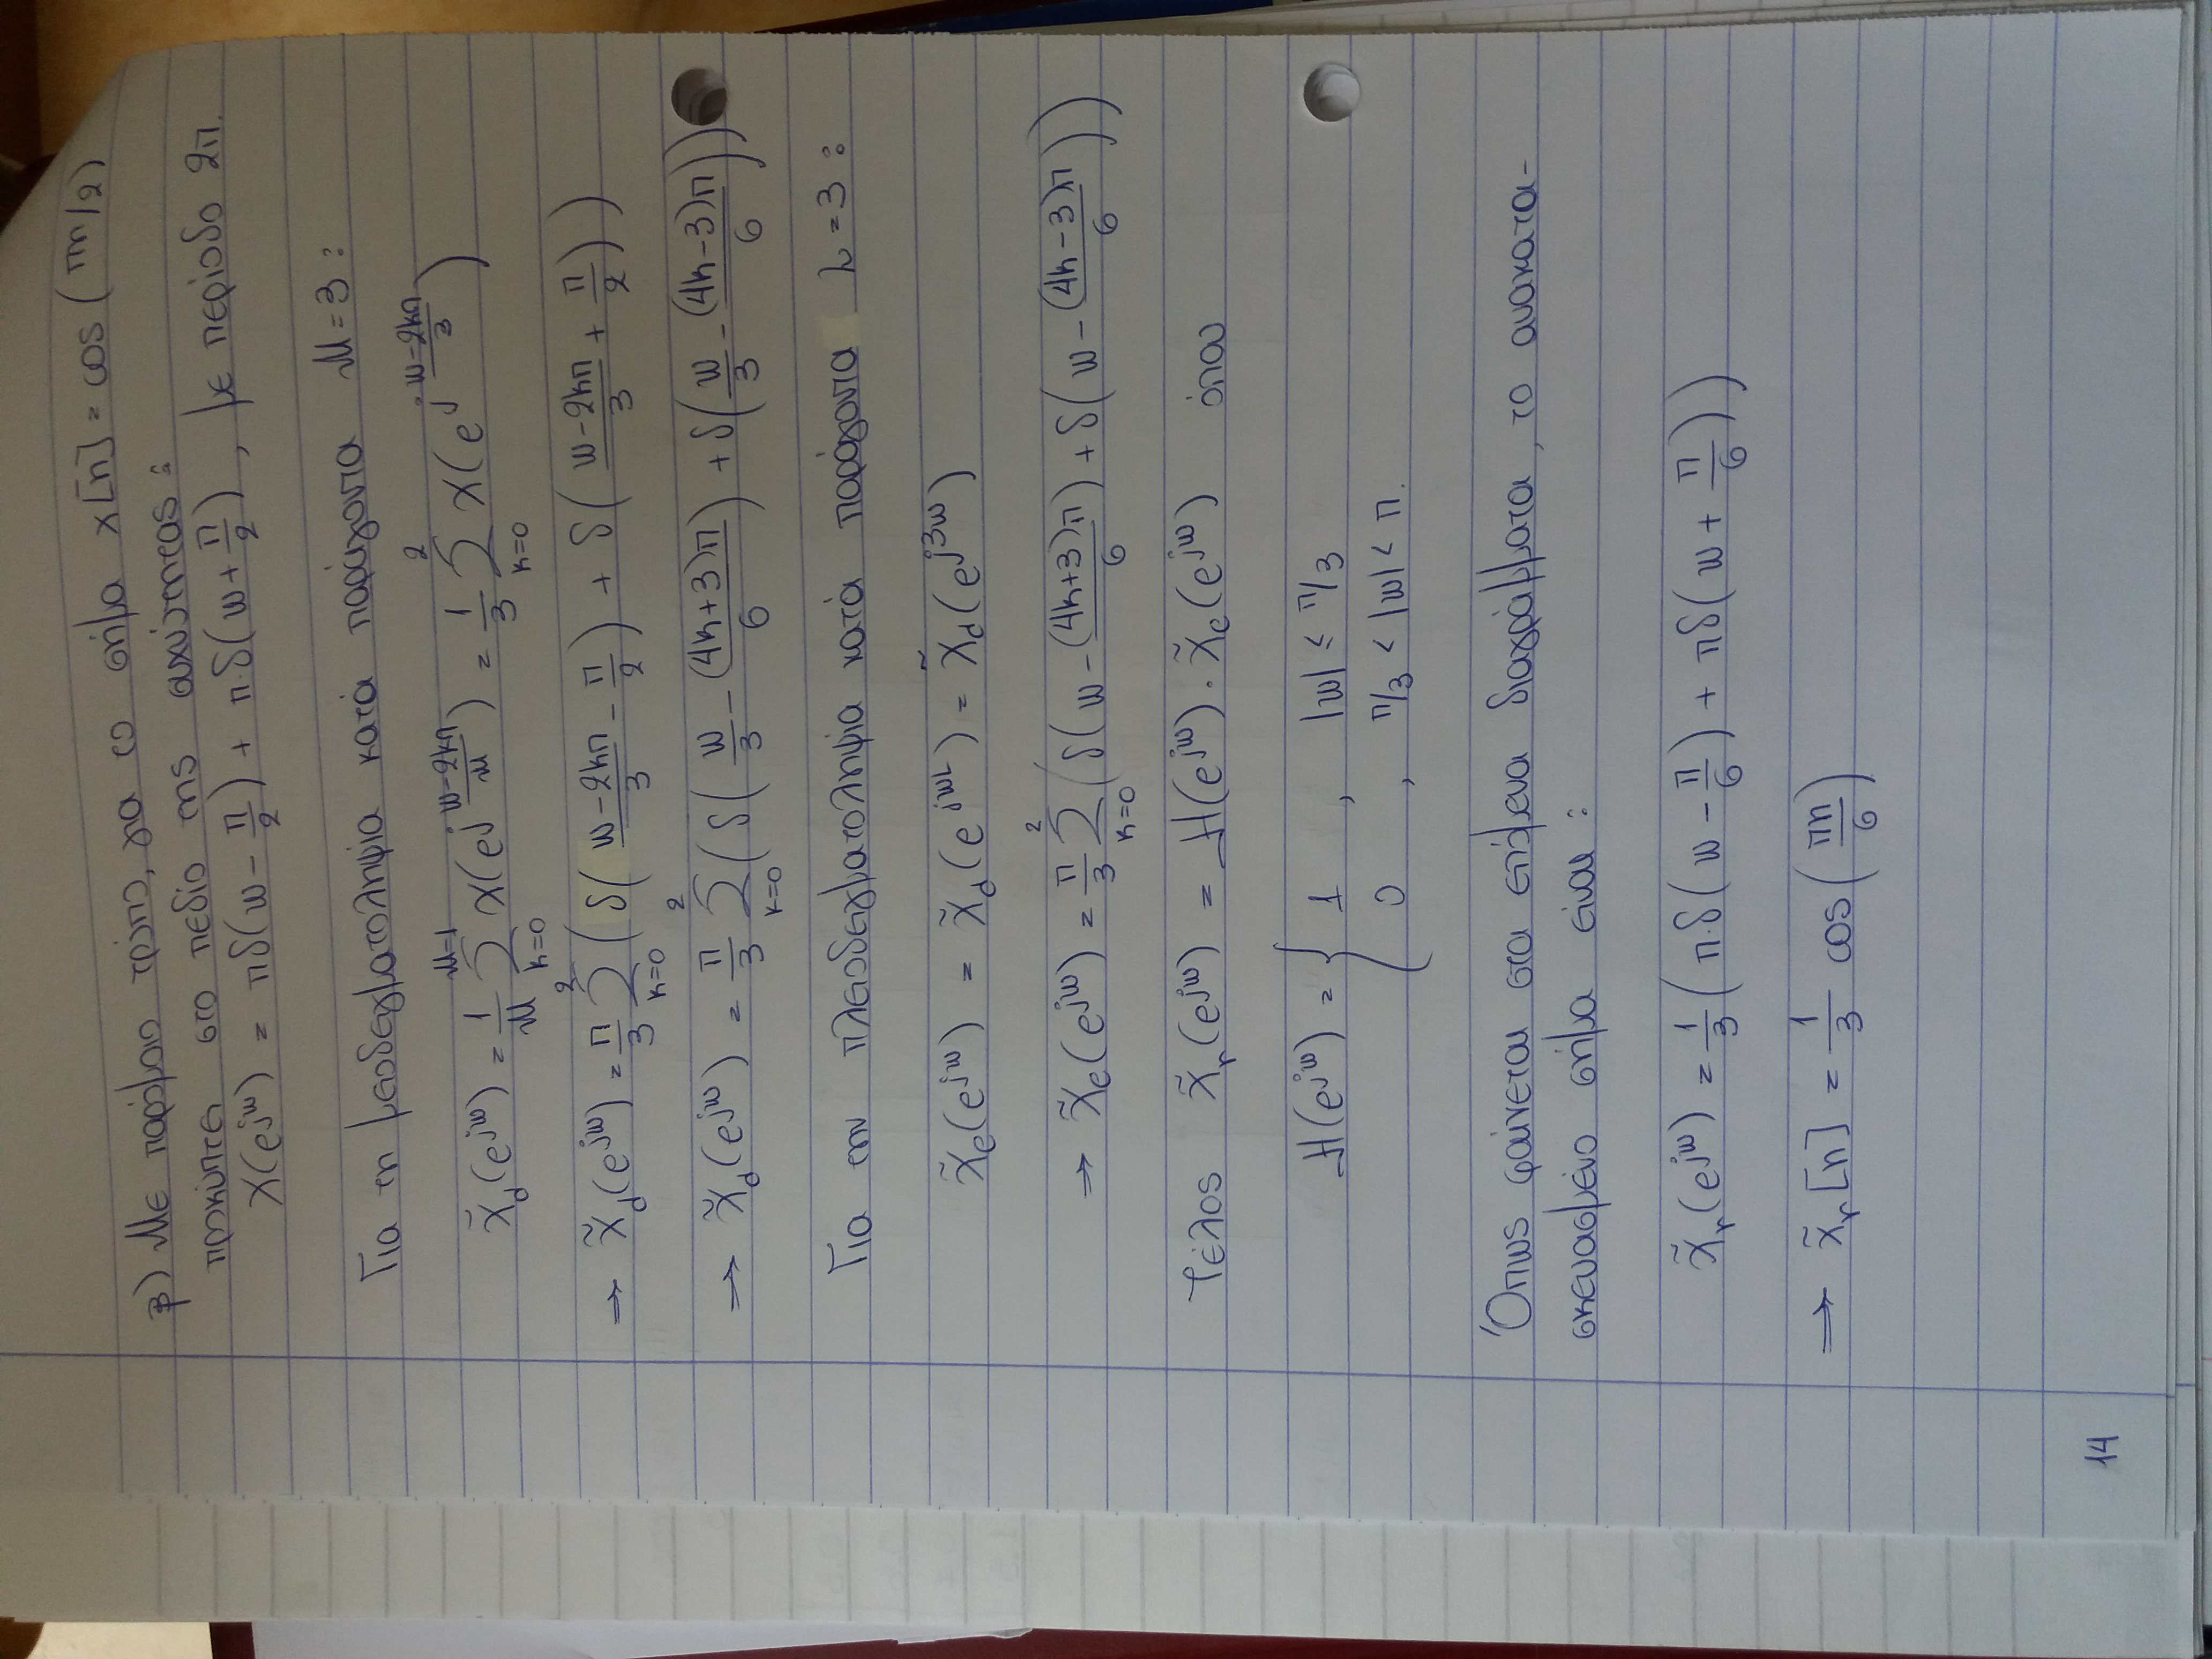 β) Με παρόμοιο τρόπο, για το σήμα x[n] = cos(πn/2)
προκύπτει στο πεδίο της συχνότητας :
X(e^{jω}) = πδ(ω - π/2) + π·δ(ω + π/2) , με περίοδο 2π.
Για τη μειοδειγματοληψία κατά παράγοντα M = 3 :
X̃_d(e^{jω}) = 1/M Σ_{k=0}^{M-1} X(e^{j(ω-2kπ)/M}) = 1/3 Σ_{k=0}^{2} X(e^{j(ω-2kπ)/3})
⇒ X̃_d(e^{jω}) = π/3 Σ_{k=0}^{2} (δ((ω-2kπ)/3 - π/2) + δ((ω-2kπ)/3 + π/2))
⇒ X̃_d(e^{jω}) = π/3 Σ_{k=0}^{2} (δ(ω/3 - (4k+3)π/6) + δ(ω/3 - (4k-3)π/6))
Για την πλειοδειγματοληψία κατά παράγοντα L = 3 :
X̃_e(e^{jω}) = X̃_d(e^{jωL}) = X̃_d(e^{j3ω})
⇒ X̃_e(e^{jω}) = π/3 Σ_{k=0}^{2} (δ(ω - (4k+3)π/6) + δ(ω - (4k-3)π/6))
Τέλος X̃_r(e^{jω}) = H(e^{jω}) · X̃_e(e^{jω}) όπου
H(e^{jω}) = { 1 , |ω| ≤ π/3
0 , π/3 < |ω| < π.
Όπως φαίνεται στα επόμενα διαγράμματα, το ανακατα-
σκευασμένο σήμα είναι :
X̃_r(e^{jω}) = 1/3 (π·δ(ω - π/6) + πδ(ω + π/6))
⇒ x̃_r[n] = 1/3 cos(πn/6)
14